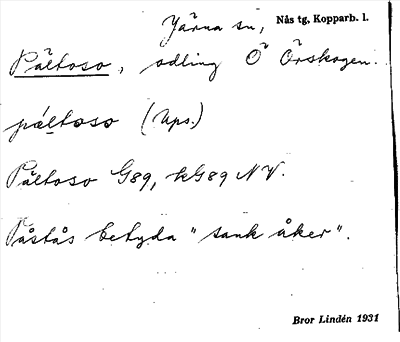 Järna sn, Nås tg, Kopparb. l.
Pältoso, odling Ö Örskogen.
pæltoso (Ups.)
Pältoso G89, kG89 NV.
Påstås betyda "sank åker".
Bror Lindén 1931